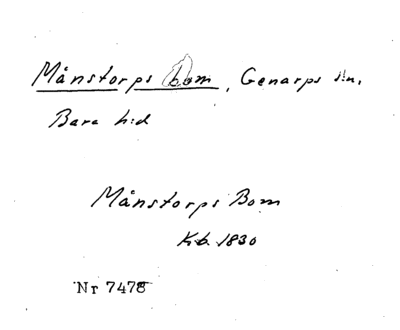 Månstorps bom, Genarps s:n,
Bara h:d
Månstorps Bom
Kb. 1830
Nr 7478